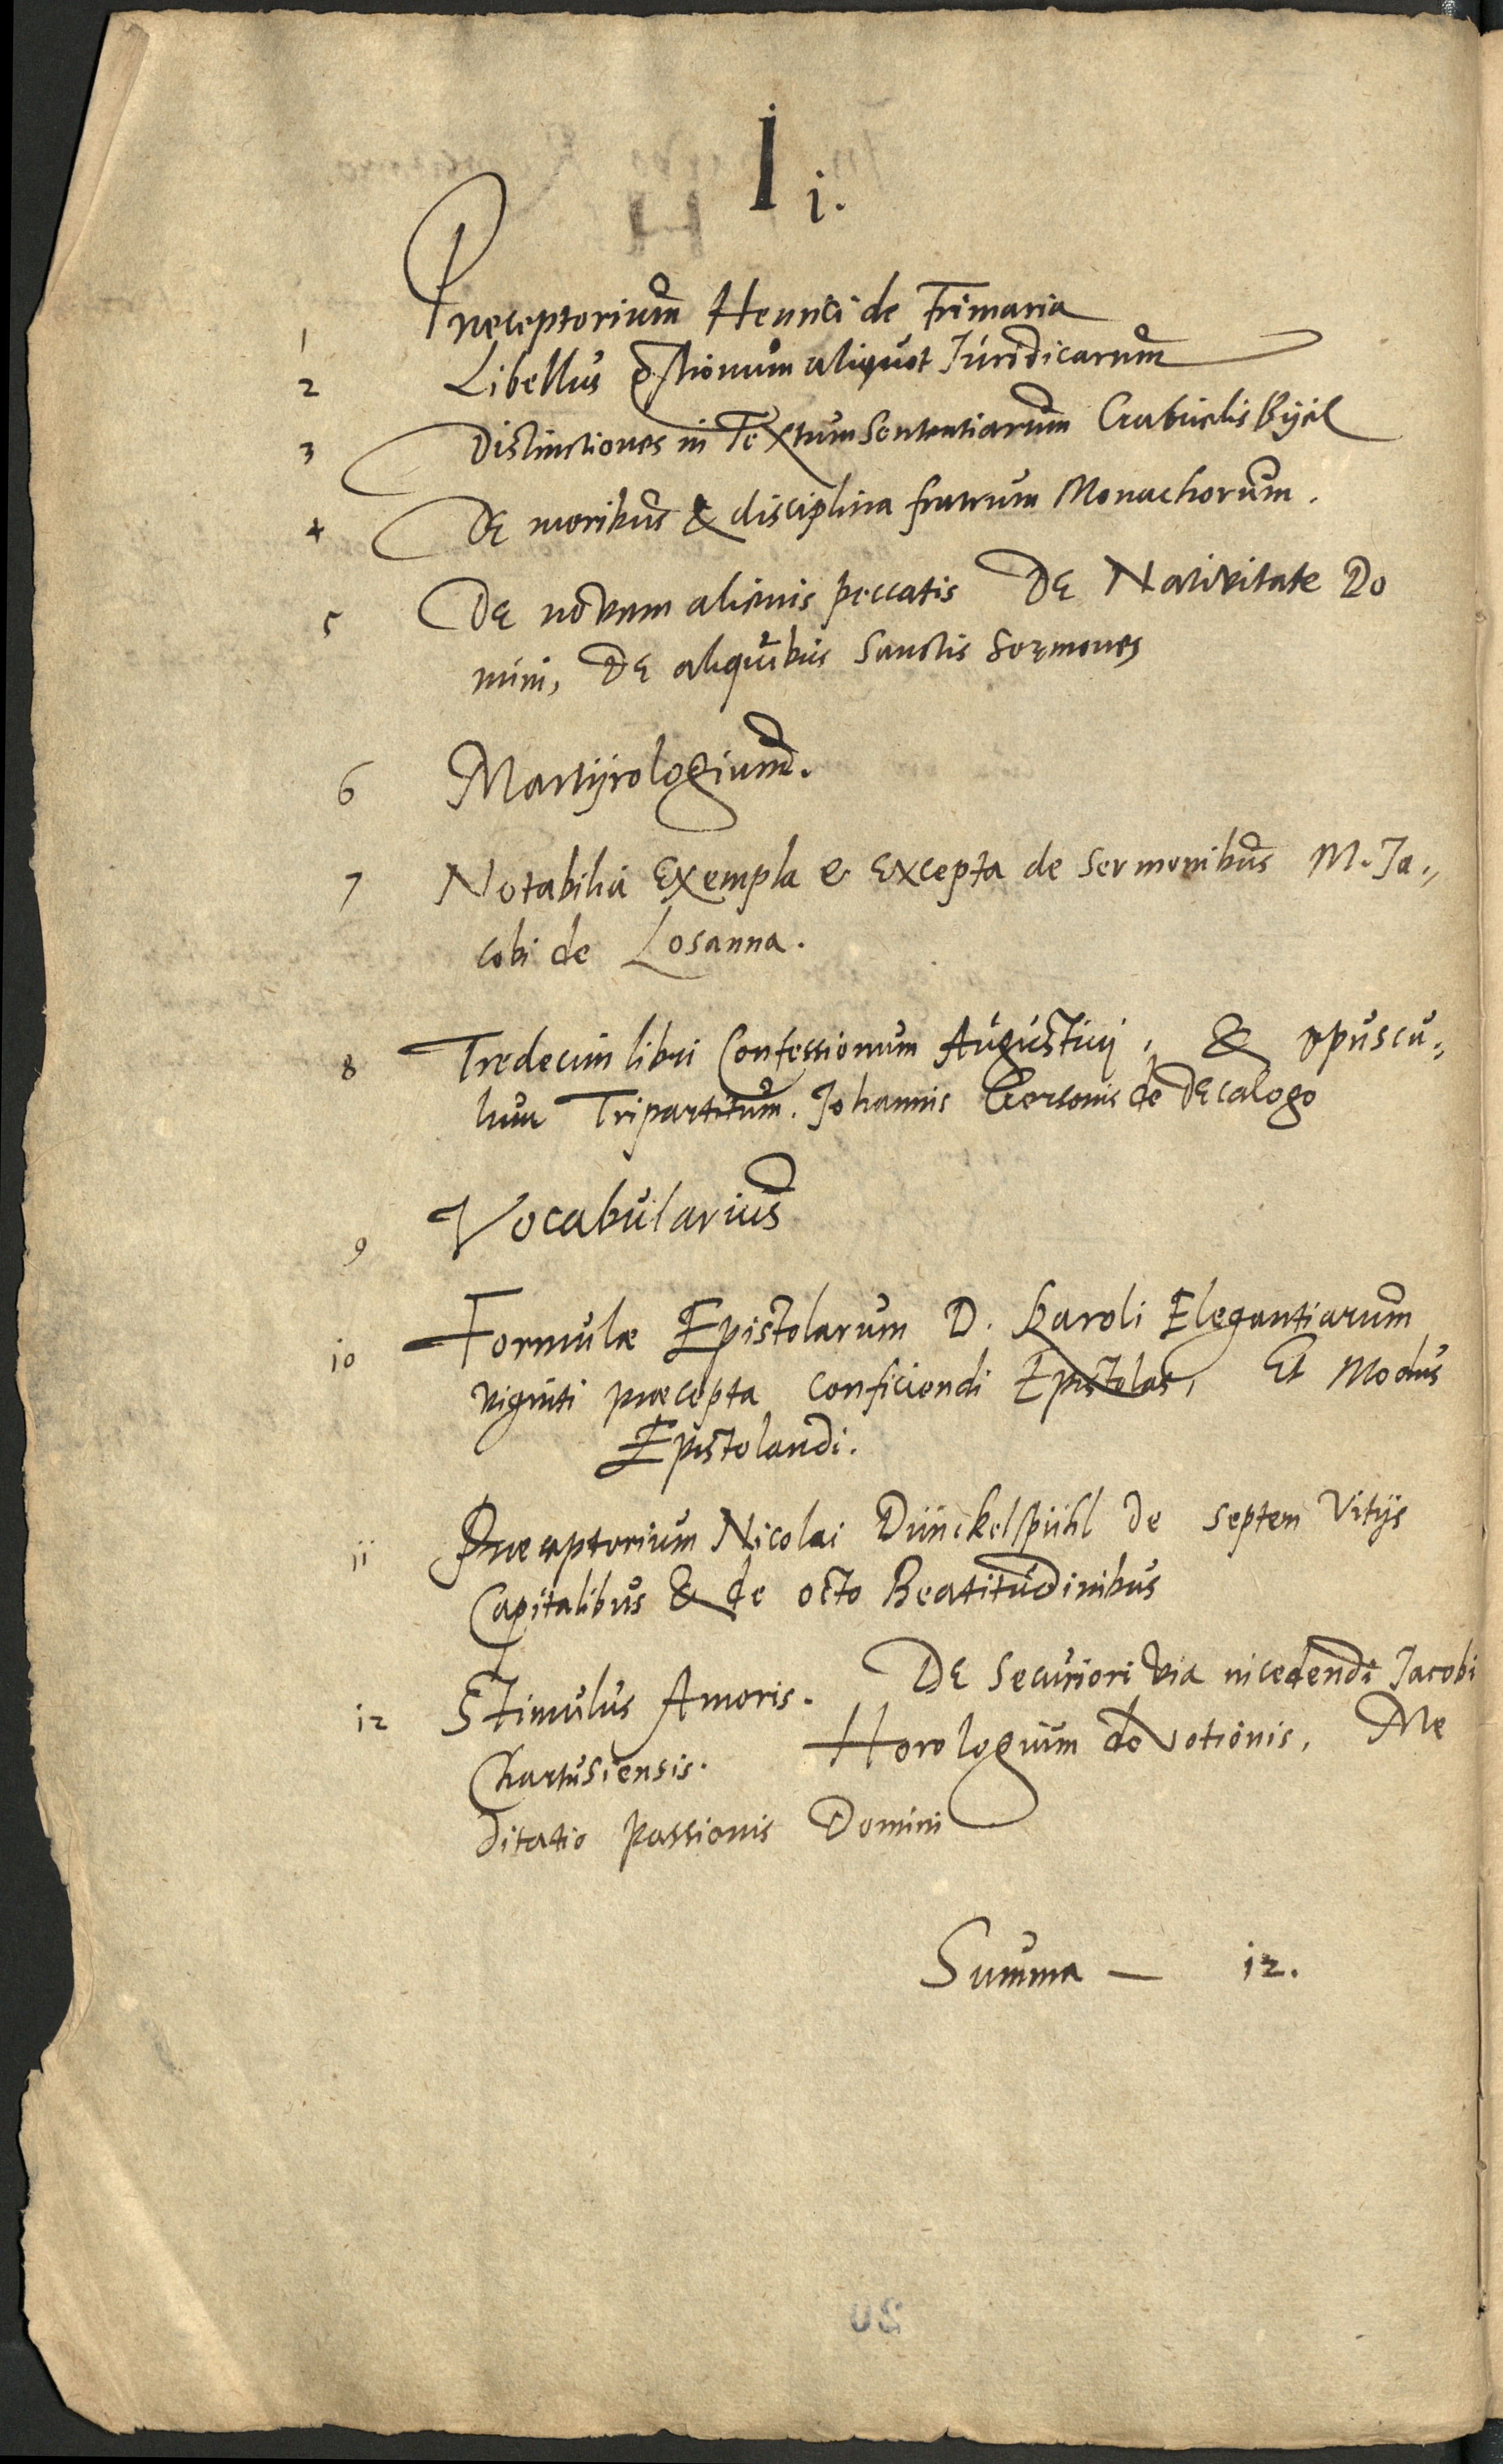 I i.
1 Preceptorium Henrici de Frimaria
2 Libellus Qstionum aliquot Iuridicarum
3 Distinctiones in Textum Sententiarum Gabrielis Byel
4 De moribus & disciplina fratrum Monachorum.
5 De novem alienis peccatis De Nativitate Do
mini, De aliquibus Sanctis Sermones
6 Martyrologium.
7 Notabilia Exempla & Excepta de Sermonibus M. Ja„
cobi de Losanna.
8 Tredecim libri Confessionum Augustini, & opuscu„
lum Tripartitum. Johannis Gersonis de Decalogo
9 Vocabularius
10 Formulæ Epistolarum D. Karoli Elegantiarum
viginti præcepta conficiendi Epistolas, Et Modus
Epistolandi.
11 Præceptorium Nicolai Dünckelspühl de septem Vitijs
Capitalibus & de octo Beatitudinibus
12 Stimulus Amoris. De Securiori via incedendi Jacobi
Chartusiensis. Horologium devotionis, Me
ditatio passionis Domini
Summa — 12.